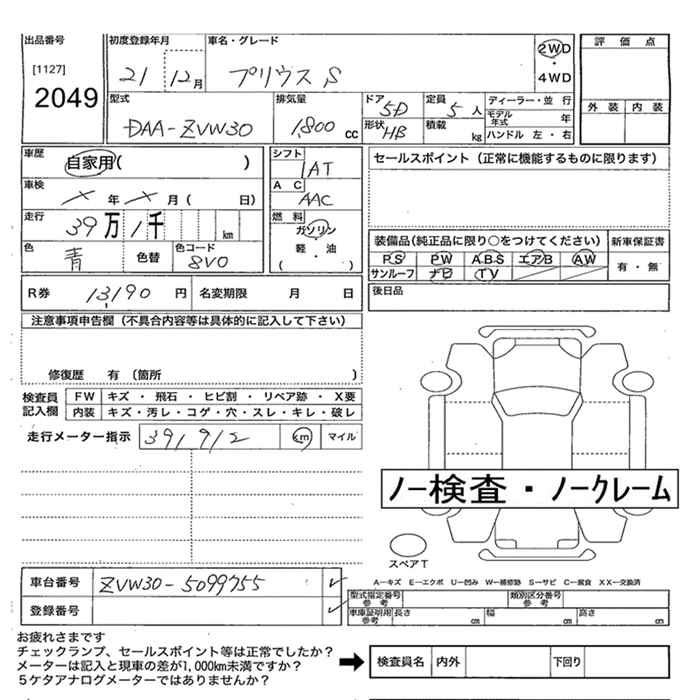 出品番号 初度登録年月 車名・グレード 評価点
[1127] 21 12月 プリウス S 2WD
・
2049 4WD
型式 排気量 ドア 5D 定員 5人 ディーラー・並行 外装 内装
DAA-ZVW30 1,800cc 形状 HB 積載 kg モデル年式 年
ハンドル 左・右
車歴 自家用( ) シフト 1AT セールスポイント(正常に機能するものに限ります)
車検 × 年 × 月( 日) AC AAC
走行 39万1千 km 燃料 ガソリン
軽・油
( )
色 青 色替 色コード 8V0
装備品(純正品に限り○をつけてください) 新車保証書
PS PW ABS エアB AW 有・無
サンルーフ ナビ TV
R券 13,190円 名変期限 月 日 後日品
注意事項申告欄(不具合内容等は具体的に記入して下さい)
修復歴 有(箇所 )
検査員記入欄 FW キズ・飛石・ヒビ割・リペア跡・X要
内装 キズ・汚レ・コゲ・穴・スレ・キレ・破レ
走行メーター指示 391912 km マイル
ノー検査・ノークレーム
スペアT
A−キズ E−エクボ U−凹み W−補修跡 S−サビ C−腐食 XX−交換済
車台番号 ZVW30-5099755
型式指定番号 参考 類別区分番号 参考
登録番号 車庫証明用 参考 長さ cm 幅 cm 高さ cm
お疲れさまです
チェックランプ、セールスポイント等は正常でしたか?
メーターは記入と現車の差が1,000km未満ですか?
5ケタアナログメーターではありませんか?
検査員名 内外 下回り